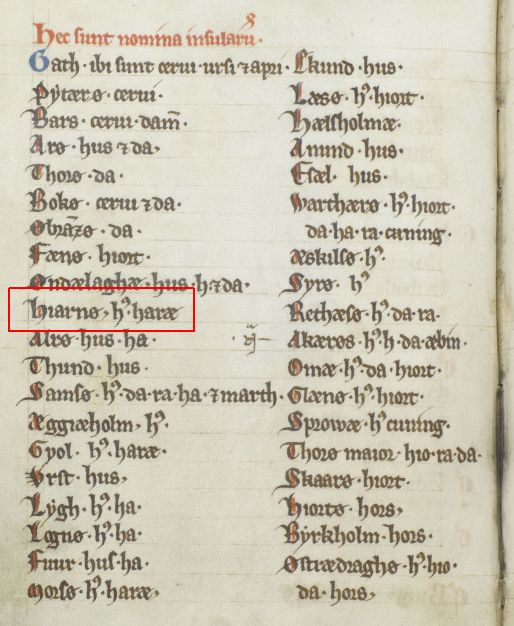 Hec sunt nomina insularū.
Gath. ibi sunt cerui. ursi ⁊ apri.
Pytærø. cerui.
Bars. cerui. dam̄.
Arø. hus ⁊ da.
Thorø. da.
Bokø. cerui ⁊ da.
Obrāzø. da.
Fænø. hiort.
Øndælaghæ. hus. h. ⁊ da.
Hiarnø. hꝰ. haræ
Alrø. hus. ha.
Thund. hus.
Samsø. hꝰ. da. ra. ha. ⁊ marth.
Æggiæholm. hꝰ.
Gyol. hꝰ. haræ.
Lygh. hꝰ. ha.
Løgnø. hꝰ. ha.
Fuur. hus. ha.
Morsø. hꝰ. haræ.
Ekund. hus.
Læsø. hꝰ. hiort.
Hælsholmæ.
Anund. hus.
Esæl. hus.
Warthærø. hꝰ. hiort.
da. ha. ra. cuning.
Æskilsø. hꝰ.
Syrø. hꝰ
Rethæsø. hꝰ. da. ra.
Akærø. hꝰ. h. da. æbin.
Omæ. hꝰ. da. hiort.
Glænø. hꝰ. hiort.
Sprowæ. hꝰ. cuning.
Thorø maior. hio. ra. da.
Skaarø. hiort.
Hiortø. hors.
Byrkholm. hors.
Østrædraghø. hꝰ. hio.
da. hors.